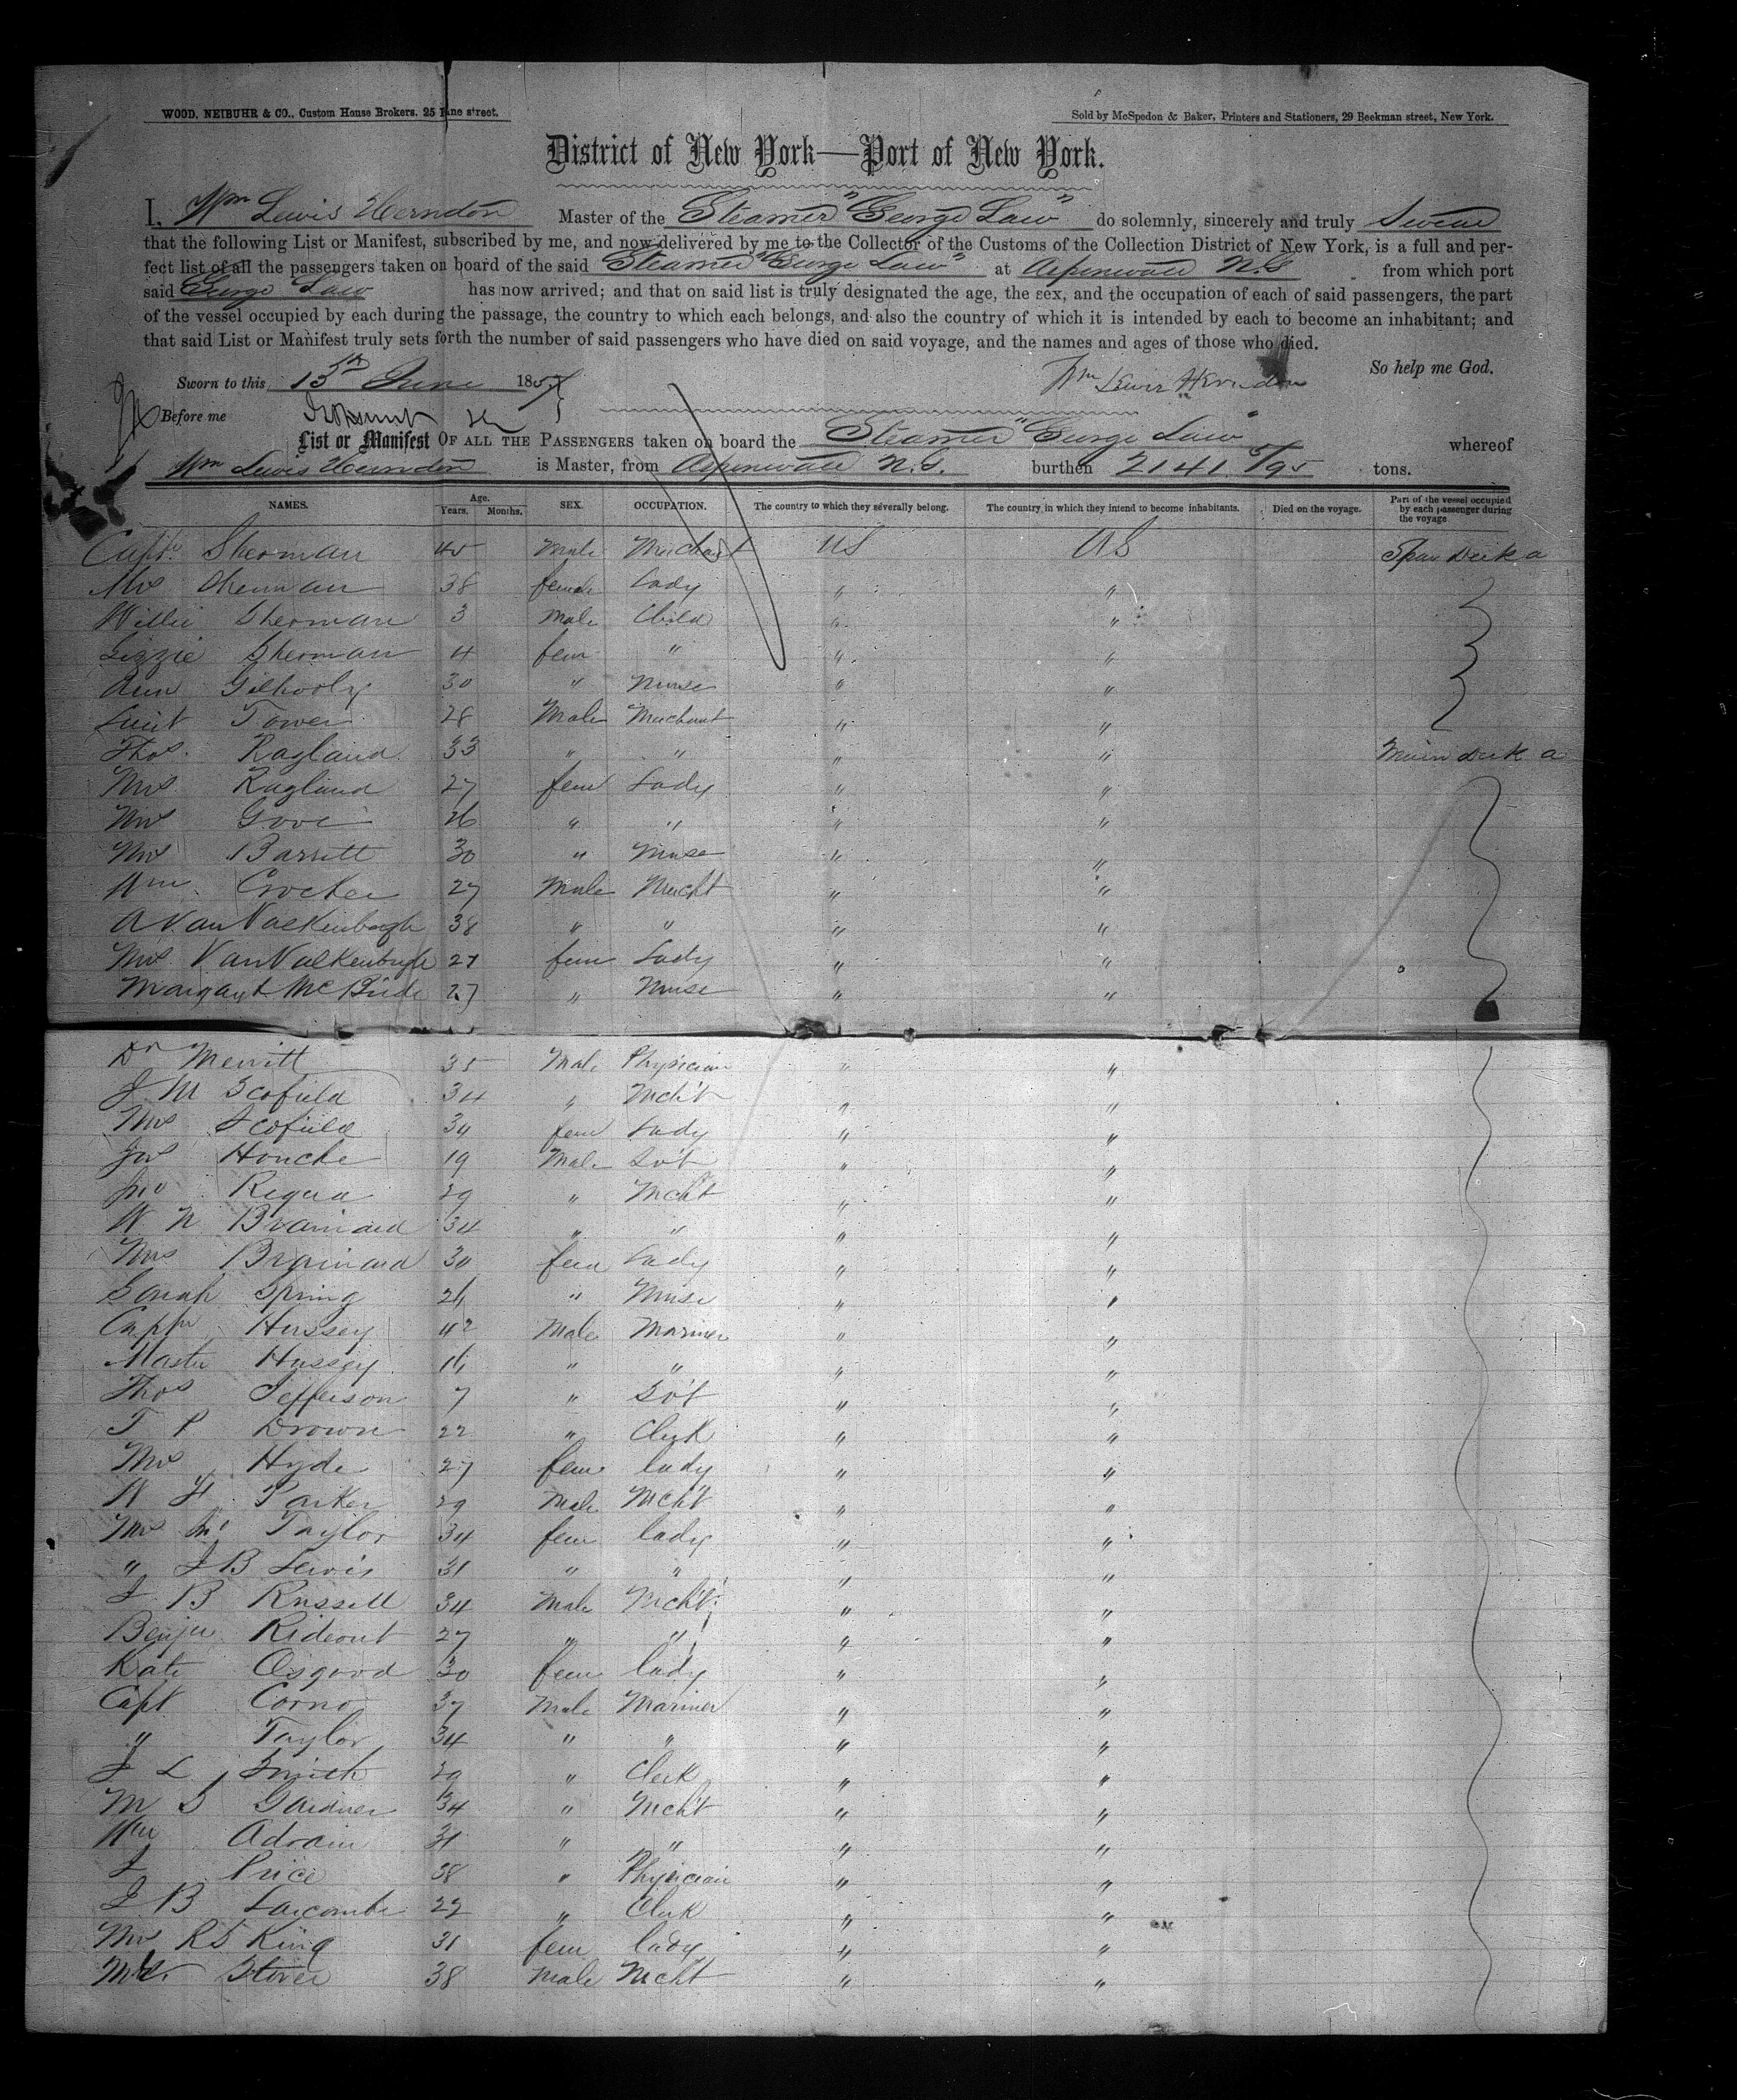 WOOD, NEIBUHR & CO., Custom House Brokers, 25 Pine street.
Sold by McSpedon & Baker, Printers and Stationers, 29 Beekman street, New York.
District of New York—Port of New York.
I, Wm Lewis Herndon Master of the Steamer "George Law" do solemnly, sincerely and truly Swear
that the following List or Manifest, subscribed by me, and now delivered by me to the Collector of the Customs of the Collection District of New York, is a full and per-
fect list of all the passengers taken on board of the said Steamer "George Law" at Aspinwall N.G. from which port
said George Law has now arrived; and that on said list is truly designated the age, the sex, and the occupation of each of said passengers, the part
of the vessel occupied by each during the passage, the country to which each belongs, and also the country of which it is intended by each to become an inhabitant; and
that said List or Manifest truly sets forth the number of said passengers who have died on said voyage, and the names and ages of those who died.
So help me God.
Sworn to this 13th June 1857 Wm Lewis Herndon
Before me
List or Manifest OF ALL THE PASSENGERS taken on board the Steamer "George Law" whereof
Wm Lewis Herndon is Master, from Aspinwall N.G. burthen 2141 5/95 tons.
NAMES. Age. Years. Months. SEX. OCCUPATION. The country to which they severally belong. The country in which they intend to become inhabitants. Died on the voyage. Part of the vessel occupied by each passenger during the voyage
Capt. Sherman 45 Male Merchant US US Spar Deck a
Mrs Sherman 38 female Lady " "
Willie Sherman 3 Male Child " "
Lizzie Sherman 4 fem " " "
Ann Gilhooly 30 " Nurse " "
Lieut Tower 28 Male Merchant " "
Thos. Ragland 33 " " " " Main Deck a
Mrs Ragland 27 fem Lady " "
Mrs Gove 26 " " " "
Mrs Barrett 30 " Nurse " "
Wm. Crocker 27 Male Mercht " "
A Van Valkenburgh 38 " " " "
Mrs. Van Valkenburgh 27 fem Lady " "
Margaret McBride 27 " Nurse " "
Dr Merritt 35 Male Physician " "
J M Scofield 34 " Mch't " "
Mrs Scofield 30 fem Lady " "
Jas Houche 19 Male Sv't " "
Jno Regua 29 " Mch't " "
W N Brainard 34 " " " "
Mrs Brainard 30 fem Lady " "
Sarah Spring 26 " Nurse " "
Captn Hussey 42 Male Mariner " "
Master Hussey 16 " " " "
Thos Jefferson 7 " Sv't " "
T P Drown 22 " Clerk " "
Mrs Hyde 27 fem lady " "
W H Parker 29 Male Mch't " "
Mrs M Taylor 34 fem lady " "
" J B Lewis 31 " " " "
J B Russell 34 Male Mch't " "
Benjn Rideout 27 " " " "
Kate Osgood 30 fem lady " "
Capt Corno 37 Male Mariner " "
" Taylor 34 " " " "
J L Smith 29 " Clerk " "
M S Gardner 34 " Mch't " "
Wm Adrain 31 " " " "
J Price 38 " Physician " "
J B Larcombe 22 " Clerk " "
Mrs R S King 31 fem lady " "
Mr. Stover 38 Male Mcht " "